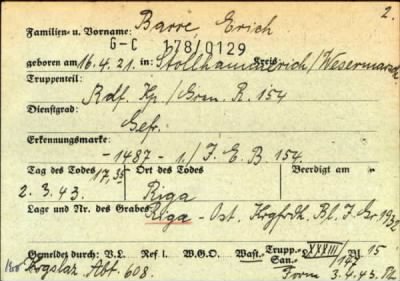 2.
Familien- u. Vorname: Barre, Erich
G-C 178/0129
geboren am 16.4.21. in: Stollhammerich/Wesermarsch Kreis
Truppenteil:
Rdf. Kp./Gren. R. 154
Dienstgrad:
Gefr.
Erkennungsmarke:
- 1487 - 1./J.E.B. 154.
Tag des Todes 17,35 Ort des Todes Beerdigt am
2.3.43. Riga
Lage und Nr. des Grabes
Riga - Ost. Krgfrdh. Bl. J. Gr. 1932
Gemeldet durch: V.L. Ref I. W.G.O. Wast. Trupp. XXXIII/ Bl. 15
San. 147
Krgslaz. Abt. 608. Form 3.4.43.